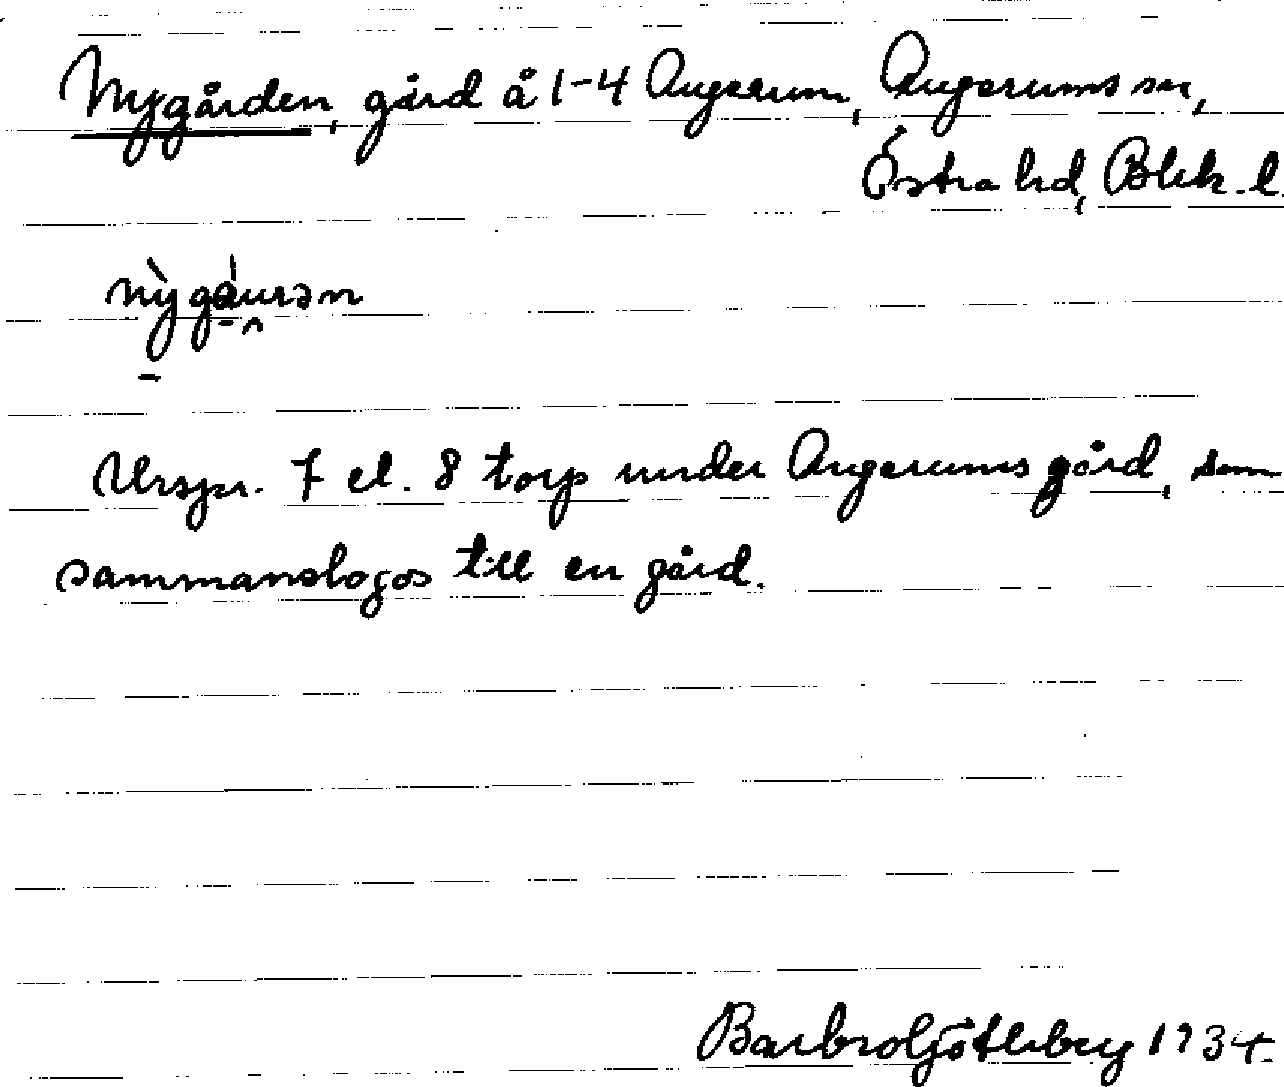 Nygården, gård å 1-4 Augerum, Augerums sn,
Östra hd, Blek. l.
nỳgáurən
Urspr. 7 el. 8 torp under Augerums gård, som
sammanslogos till en gård.
Barbro Götleberg 1934.